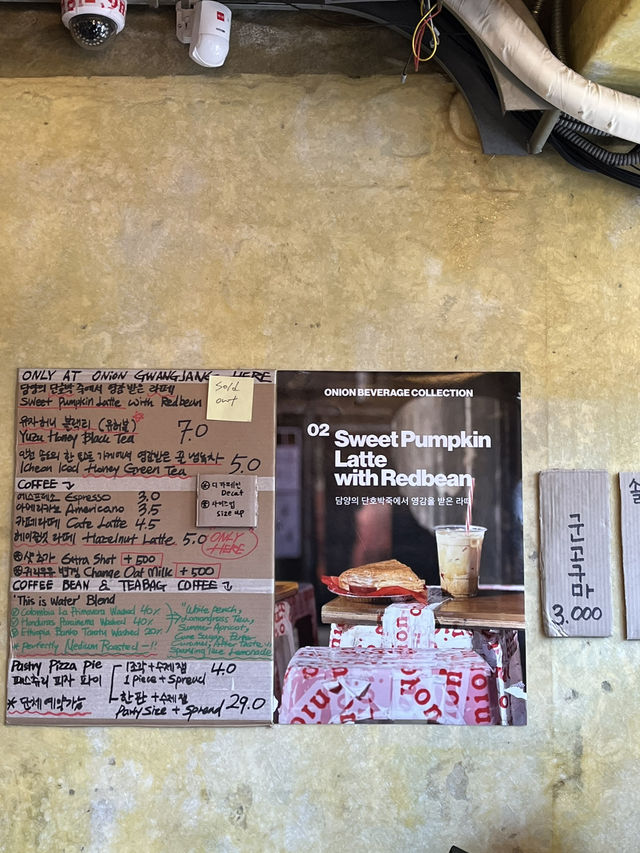 ONLY AT ONION GWANGJANG HERE
담양의 단호박 죽에서 영감 받은 라떼
Sweet Pumpkin Latte with Redbean
Sold out
유자 허니 블랙티 (유허블)
Yuzu Honey Black Tea 7.0
Icheon Iced Honey Green Tea 5.0
COFFEE
에스프레소 Espresso 3.0
아메리카노 Americano 3.5
카페라떼 Cafe Latte 4.5
헤이즐넛 라떼 Hazelnut Latte 5.0 ONLY HERE
디카페인
Decaf
사이즈업
size up
샷 추가 Extra Shot +500
Change Oat Milk +500
COFFEE BEAN & TEABAG COFFEE
'This is Water' Blend
Colombia La Primavera Washed 40%
Honduras Parainema Washed 40%
Ethiopia Banko Taratu Washed 20%
* Perfectly Medium Roasted-!!
"White peach,
Lemongrass Tea,
Summer Apricot,
Cane Sugar,
Caramel, After Taste
Sparkling like Lemonade
Pastry Pizza Pie
페스츄리 피자 파이
* 단체 예약가능
1조각+수제잼 4.0
1 piece + Spread
한판 +수제잼
Party Size + Spread 29.0
ONION BEVERAGE COLLECTION
02 Sweet Pumpkin
Latte
with Redbean
담양의 단호박죽에서 영감을 받은 라떼
onion
군고구마
3.000